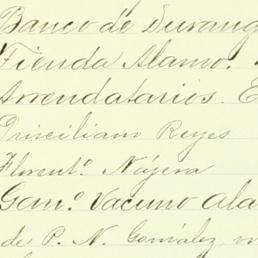 Banco de Durang
Tienda Alamo.
Arrendatarios. E
Prisciliano Reyes
Florent.º Nájera
Gan.º Vacuno Ala
de P. N. González